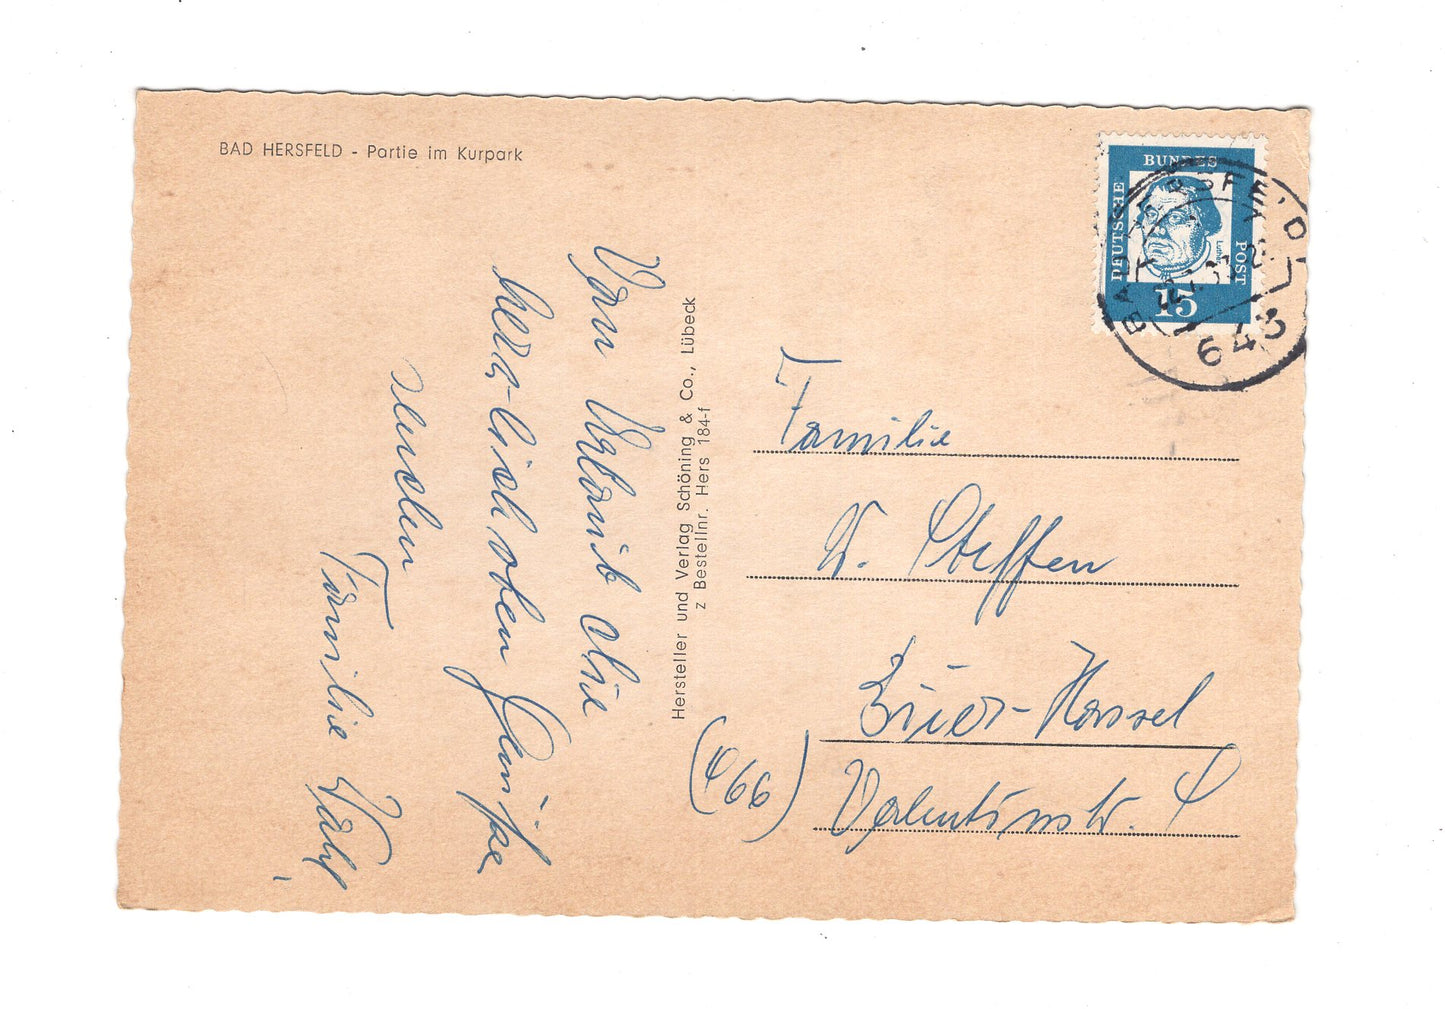 BAD HERSFELD - Partie im Kurpark
DEUTSCHE
BUNDES
POST
Luther
15
BAD HERSFELD
643
Von Urlaub die
herzlichsten Grüße
senden
Familie
Hersteller und Verlag Schöning & Co., Lübeck
z Bestellnr. Hers 184-f
Familie
W. Steffen
(466) Buer-Hassel
Valentinstr. 9